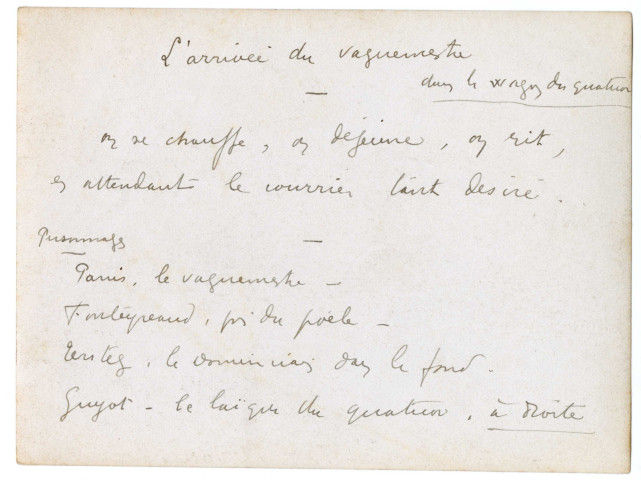 L'arrivée du vaguemestre
dans le wagon du quatuor
—
on se chauffe, on déjeune, on rit,
en attendant le courrier tant désiré.
Personnages
—
Paris, le vaguemestre —
Fontégreaud, près du poêle —
le dominicain dans le fond.
Guyot - le laïque du quatuor, à droite